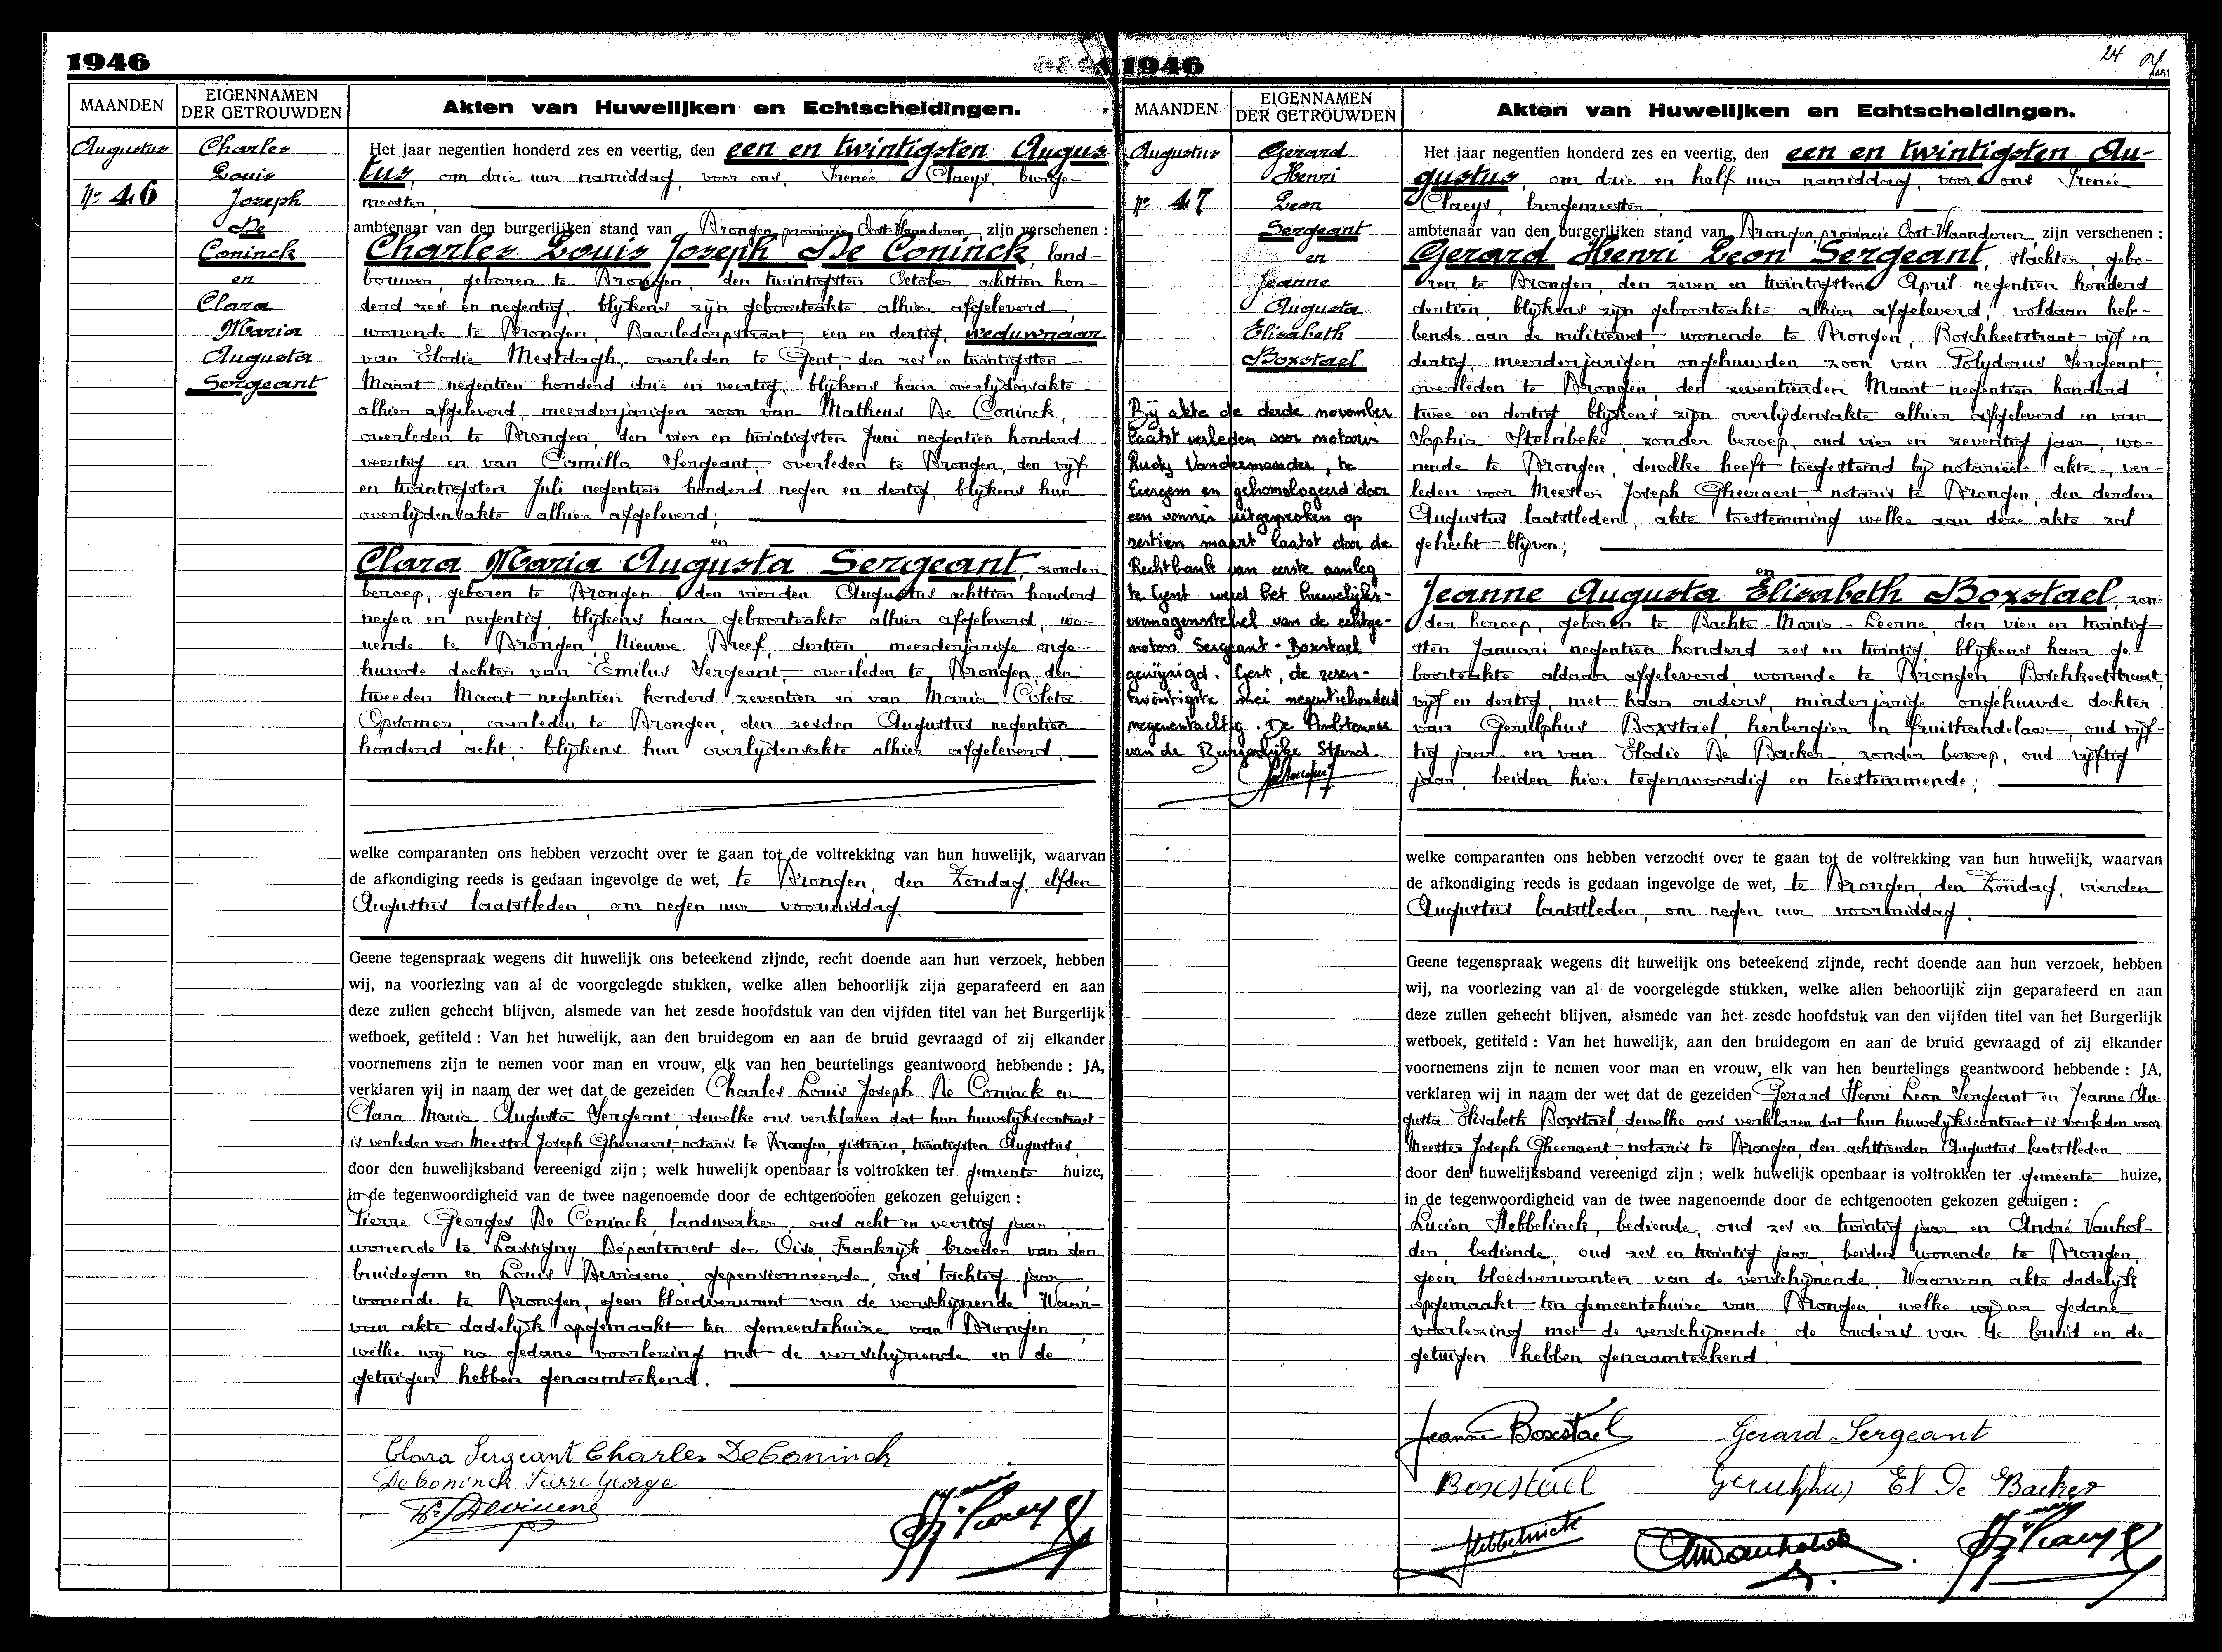 1946
MAANDEN
EIGENNAMEN
DER GETROUWDEN
Akten van Huwelijken en Echtscheidingen.
Augustus
No 46
Charles
Louis
Joseph
De
Coninck
en
Clara
Maria
Augusta
Sergeant
Het jaar negentien honderd zes en veertig, den een en twintigsten Augus
tus, om drie uur namiddag, voor ons, Irenée Claeys, burge-
meester,
ambtenaar van den burgerlijken stand van Drongen, provincie Oost-Vlaanderen, zijn verschenen :
Charles Louis Joseph De Coninck, land-
bouwer, geboren te Drongen, den twintigsten October achttien hon-
derd zes en negentig, blijkens zijn geboorteakte alhier afgeleverd,
wonende te Drongen, Baarledorpstraat, een en dertig, weduwnaar
van Elodie Mestdagh, overleden te Gent, den zes en twintigsten
Maart negentien honderd drie en veertig, blijkens haar overlijdensakte
alhier afgeleverd, meerderjarigen zoon van Matheus De Coninck,
overleden te Drongen, den vier en twintigsten Juni negentien honderd
veertig en van Camilla Sergeant, overleden te Drongen, den vijf
en twintigsten Juli negentien honderd negen en dertig, blijkens hun
overlijdensakte alhier afgeleverd;
en
Clara Maria Augusta Sergeant, zonder
beroep, geboren te Drongen, den vierden Augustus achttien honderd
negen en negentig, blijkens haar geboorteakte alhier afgeleverd, wo-
nende te Drongen, Nieuwe Dreef, dertien, meerderjarige onge-
huwde dochter van Emilus Sergeant, overleden te Drongen, den
tweeden Maart negentien honderd zeventien en van Maria Coleta
Opsomer, overleden te Drongen, den zesden Augustus negentien
honderd acht, blijkens hun overlijdensakte alhier afgeleverd.
welke comparanten ons hebben verzocht over te gaan tot de voltrekking van hun huwelijk, waarvan
de afkondiging reeds is gedaan ingevolge de wet, te Drongen, den Zondag, elfden
Augustus laatstleden, om negen uur voormiddag.
Geene tegenspraak wegens dit huwelijk ons beteekend zijnde, recht doende aan hun verzoek, hebben
wij, na voorlezing van al de voorgelegde stukken, welke allen behoorlijk zijn geparafeerd en aan
deze zullen gehecht blijven, alsmede van het zesde hoofdstuk van den vijfden titel van het Burgerlijk
wetboek, getiteld : Van het huwelijk, aan den bruidegom en aan de bruid gevraagd of zij elkander
voornemens zijn te nemen voor man en vrouw, elk van hen beurtelings geantwoord hebbende : JA,
verklaren wij in naam der wet dat de gezeiden Charles Louis Joseph De Coninck en
Clara Maria Augusta Sergeant, dewelke ons verklaren dat hun huwelijkscontract
is verleden voor Meester Joseph Gheeraert, notaris te Drongen, gisteren, twintigsten Augustus,
door den huwelijksband vereenigd zijn ; welk huwelijk openbaar is voltrokken ter gemeente huize,
in de tegenwoordigheid van de twee nagenoemde door de echtgenooten gekozen getuigen :
Pierre Georges De Coninck, landwerker, oud acht en veertig jaar,
wonende te Lassigny, Département der Oise, Frankrijk, broeder van den
bruidegom en Louis Deviaene, gepensionneerde, oud tachtig jaar,
wonende te Drongen, geen bloedverwant van de verschijnende. Waar-
van akte dadelijk opgemaakt ten gemeentehuize van Drongen,
welke wij na gedane voorlezing met de verschijnende en de
getuigen hebben genaamteekend.
Clara Sergeant Charles DeConinck
De Coninck Pierre George
1946
24
MAANDEN
EIGENNAMEN
DER GETROUWDEN
Akten van Huwelijken en Echtscheidingen.
Augustus
No 47
Gerard
Henri
Leon
Sergeant
en
Jeanne
Augusta
Elisabeth
Boxstael
Bij akte de derde november
laatst verleden voor notaris
Rudy Vandermander, te
Evergem en gehomologeerd door
een vonnis uitgesproken op
zestien maart laatst door de
Rechtbank van eerste aanleg
te Gent werd het huwelijks-
vermogensstelsel van de echtge-
noten Sergeant - Boxstael
gewijzigd. Gent, de zeven-
twintigste mei negentienhonderd
negenentachtig. De Ambtenaar
van de Burgerlijke Stand.
Het jaar negentien honderd zes en veertig, den een en twintigsten Au-
gustus, om drie en half uur namiddag, voor ons Irenée
Claeys, burgemeester,
ambtenaar van den burgerlijken stand van Drongen, provincie Oost-Vlaanderen, zijn verschenen :
Gerard Henri Leon Sergeant, slachter, gebo-
ren te Drongen, den zeven en twintigsten April negentien honderd
dertien, blijkens zijn geboorteakte alhier afgeleverd, voldaan heb-
bende aan de militiewet, wonende te Drongen, Boschkeetstraat, vijf en
dertig, meerderjarigen ongehuwden zoon van Polydorus Sergeant,
overleden te Drongen, den zeventienden Maart negentien honderd
twee en dertig, blijkens zijn overlijdensakte alhier afgeleverd en van
Sophia Steenbeke, zonder beroep, oud vier en zeventig jaar, wo-
nende te Drongen, dewelke heeft toegestemd bij notarieële akte, ver-
leden voor Meester Joseph Gheeraert, notaris te Drongen, den derden
Augustus laatstleden, akte toestemming welke aan deze akte zal
gehecht blijven;
en
Jeanne Augusta Elisabeth Boxstael, zon-
der beroep, geboren te Bachte-Maria-Leerne, den vier en twintig-
sten Januari negentien honderd zes en twintig, blijkens haar ge-
boorteakte aldaar afgeleverd, wonende te Drongen Boschkeetstraat,
vijf en dertig, met haar ouders, minderjarige ongehuwde dochter
van Gerulphus Boxstael, herbergier en fruithandelaar, oud vijf-
tig jaar en van Elodie De Backer, zonder beroep, oud vijftig
jaar, beiden hier tegenwoordig en toestemmende;
welke comparanten ons hebben verzocht over te gaan tot de voltrekking van hun huwelijk, waarvan
de afkondiging reeds is gedaan ingevolge de wet, te Drongen, den Zondag, vierden
Augustus laatstleden, om negen uur voormiddag.
Geene tegenspraak wegens dit huwelijk ons beteekend zijnde, recht doende aan hun verzoek, hebben
wij, na voorlezing van al de voorgelegde stukken, welke allen behoorlijk zijn geparafeerd en aan
deze zullen gehecht blijven, alsmede van het zesde hoofdstuk van den vijfden titel van het Burgerlijk
wetboek, getiteld : Van het huwelijk, aan den bruidegom en aan de bruid gevraagd of zij elkander
voornemens zijn te nemen voor man en vrouw, elk van hen beurtelings geantwoord hebbende : JA,
verklaren wij in naam der wet dat de gezeiden Gerard Henri Leon Sergeant en Jeanne Au-
gusta Elisabeth Boxstael, dewelke ons verklaren dat hun huwelijkscontract is verleden voor
Meester Joseph Gheeraert, notaris te Drongen, den achttienden Augustus laatstleden
door den huwelijksband vereenigd zijn ; welk huwelijk openbaar is voltrokken ter gemeente huize,
in de tegenwoordigheid van de twee nagenoemde door de echtgenooten gekozen getuigen :
Lucien Hebbelinck, bediende, oud zes en twintig jaar en André Vanhol-
der, bediende, oud zes en twintig jaar, beiden wonende te Drongen,
geen bloedverwanten van de verschijnende. Waarvan akte dadelijk
opgemaakt ten gemeentehuize van Drongen, welke wij na gedane
voorlezing met de verschijnende, de ouders van de bruid en de
getuigen hebben genaamteekend.
Jeanne Boxstael Gerard Sergeant
Boxstael Gerulphus El De Backer
Hebbelinck